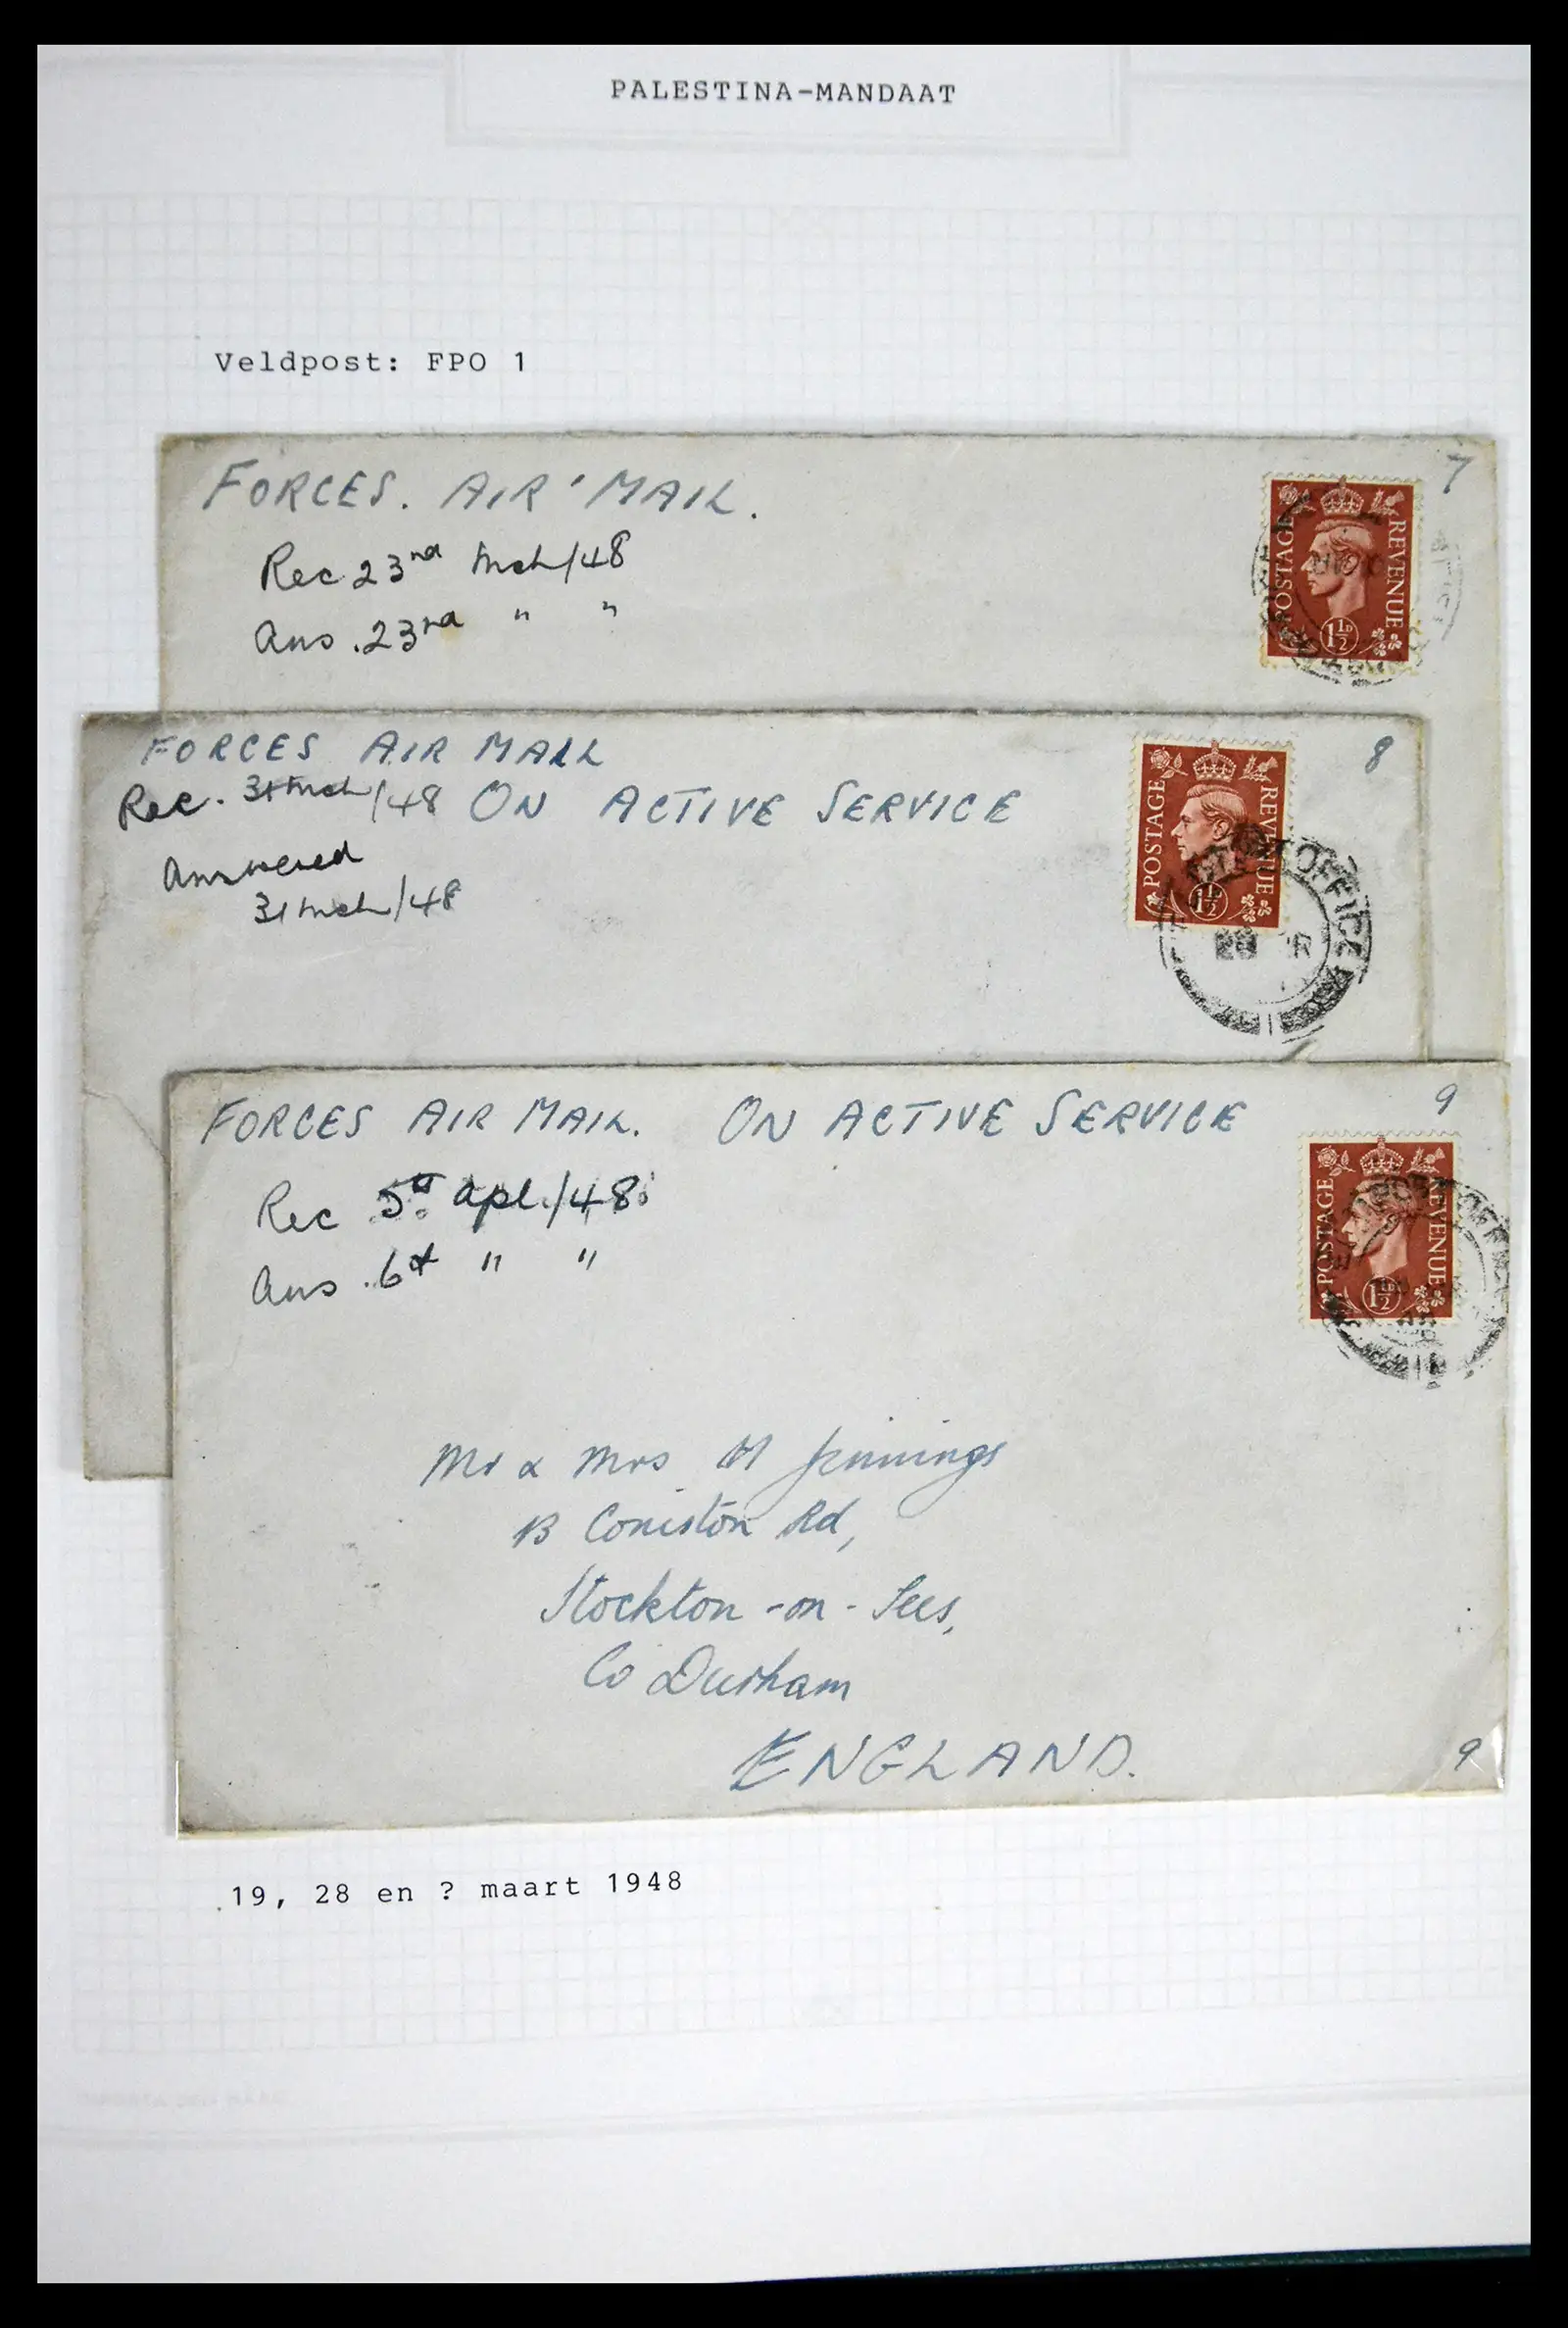 PALESTINA-MANDAAT
Veldpost: FPO 1
FORCES. AIR MAIL.
7
Rec 23rd Mch/48
Ans. 23rd " "
POSTAGE
REVENUE
1½D
FORCES AIR MAIL
8
Rec. 31 Mch/48
ON ACTIVE SERVICE
Answered
31 Mch/48
POSTAGE
REVENUE
1½D
OFFICE
28
FORCES AIR MAIL. ON ACTIVE SERVICE
9
Rec 5th apl./48
Ans. 6th " "
POSTAGE
REVENUE
1½D
Mr & Mrs H Jennings
13 Coniston Rd,
Stockton-on-Tees,
Co Durham
ENGLAND.
9
19, 28 en ? maart 1948